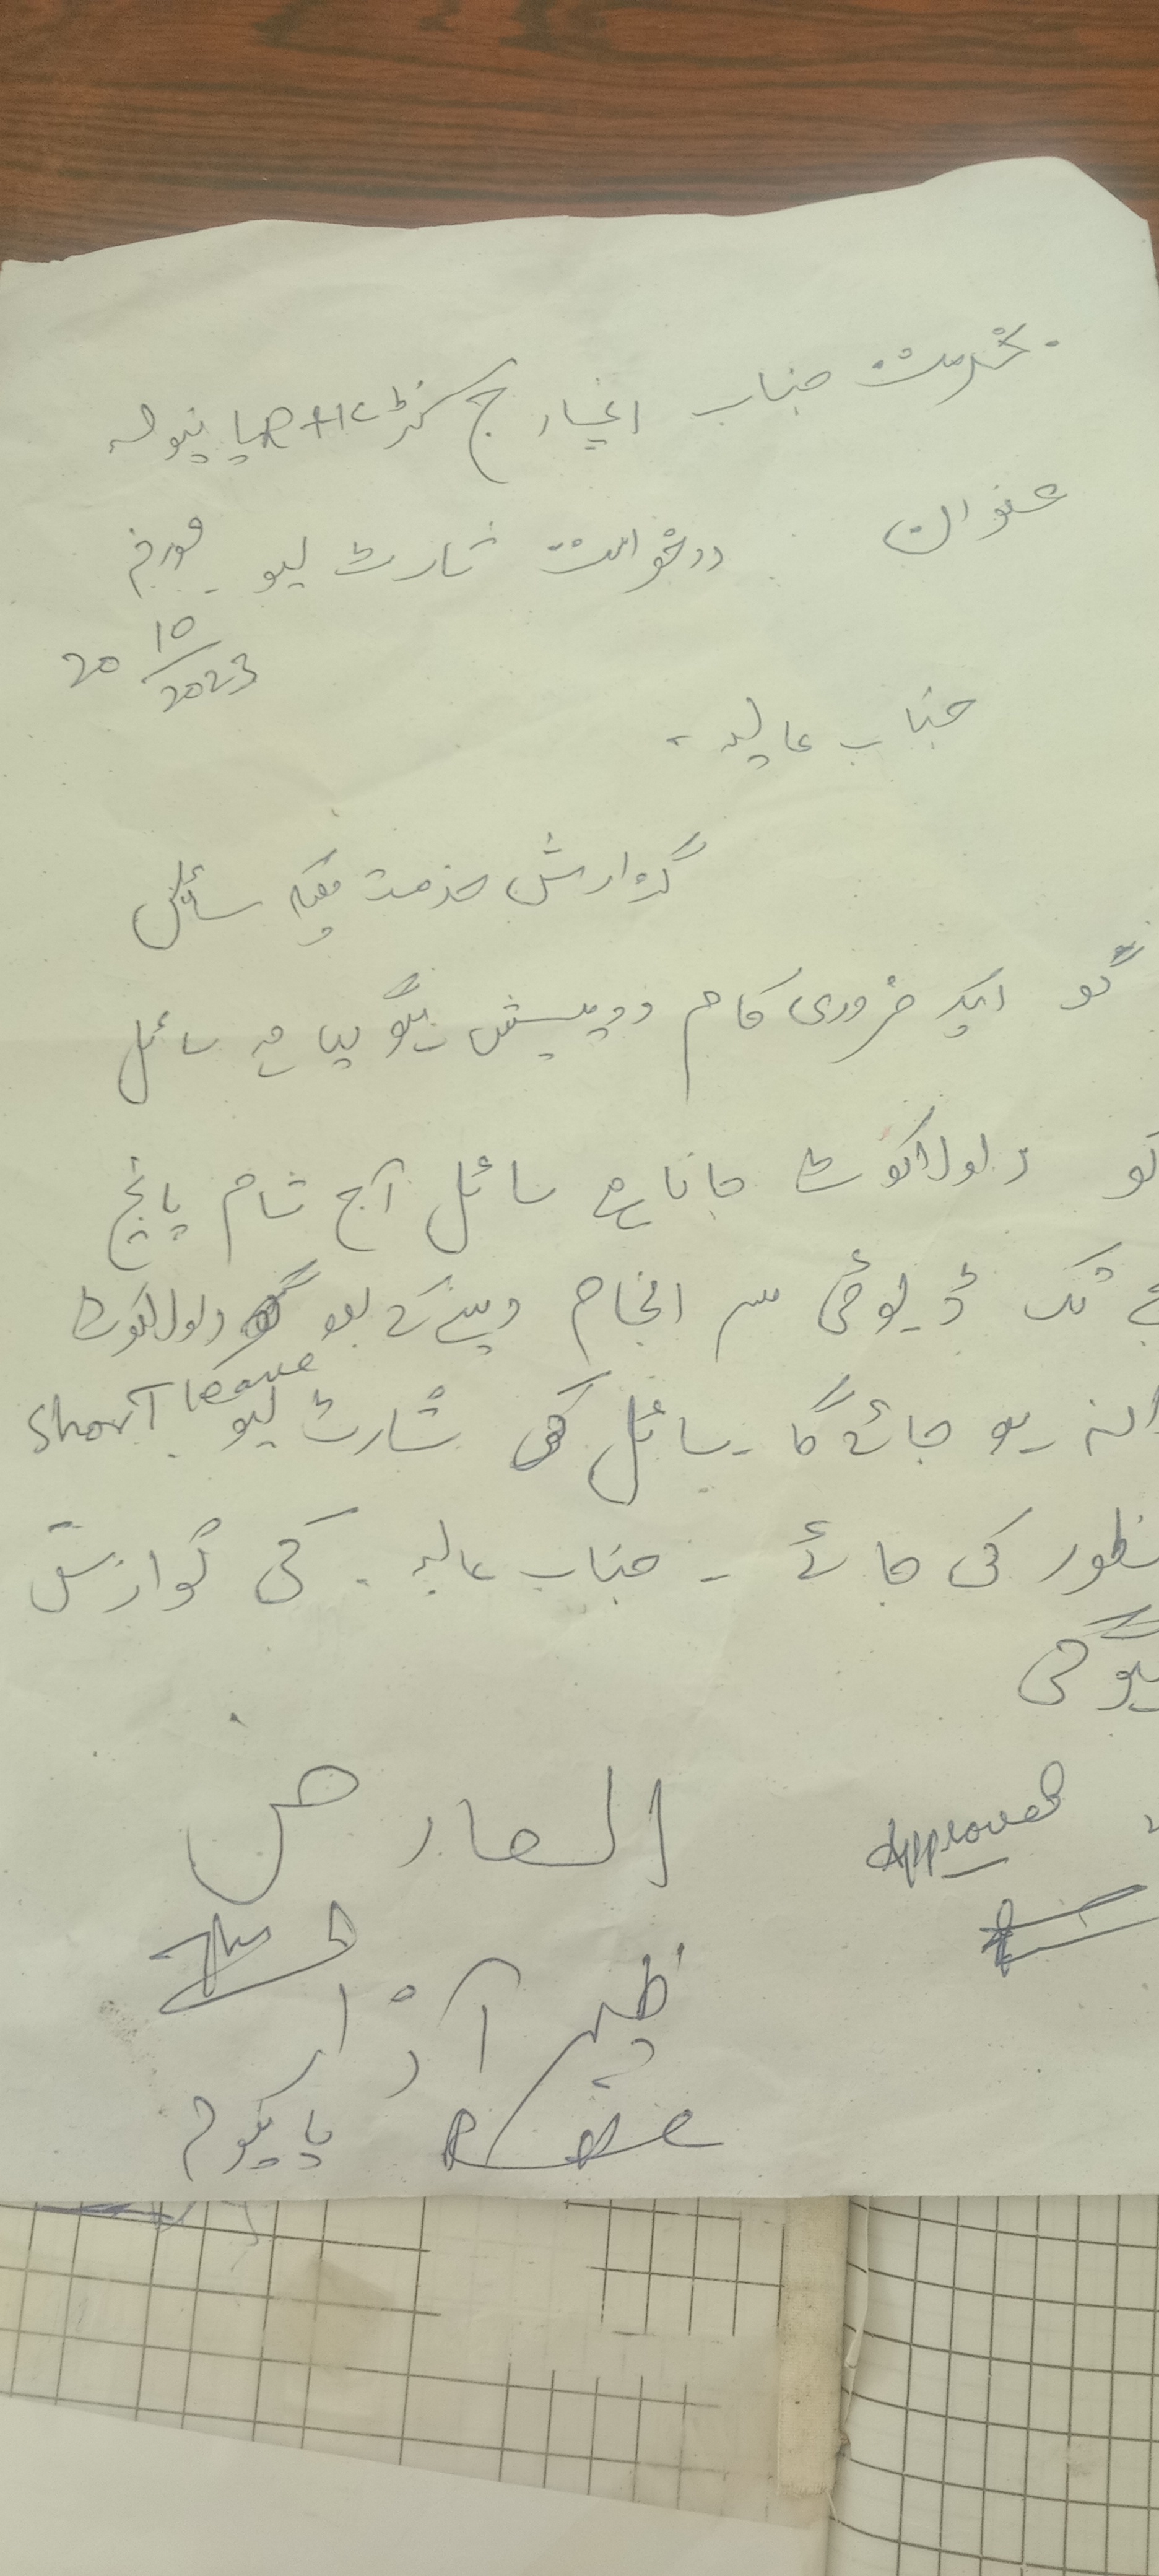 بخدمت جناب انچارج سنٹر RHC پاچیوٹ
عنوان درخواست شارٹ لیو مورخہ
20 10/2023
جناب عالیہ،
گزارش خدمت ہیکہ سائل
کو ایک ضروری کام درپیش ہوگیا ہے سائل
کو راولاکوٹ جانا ہے سائل آج شام پانچ
بجے تک ڈیوٹی سر انجام دینے کے بعد راولاکوٹ
روانہ ہو جائے گا۔ سائل کی شارٹ لیو Short Leave
منظور کی جائے ۔ جناب عالیہ کی نوازش
ہوگی
العارض
Approved
ظہیر آزاد